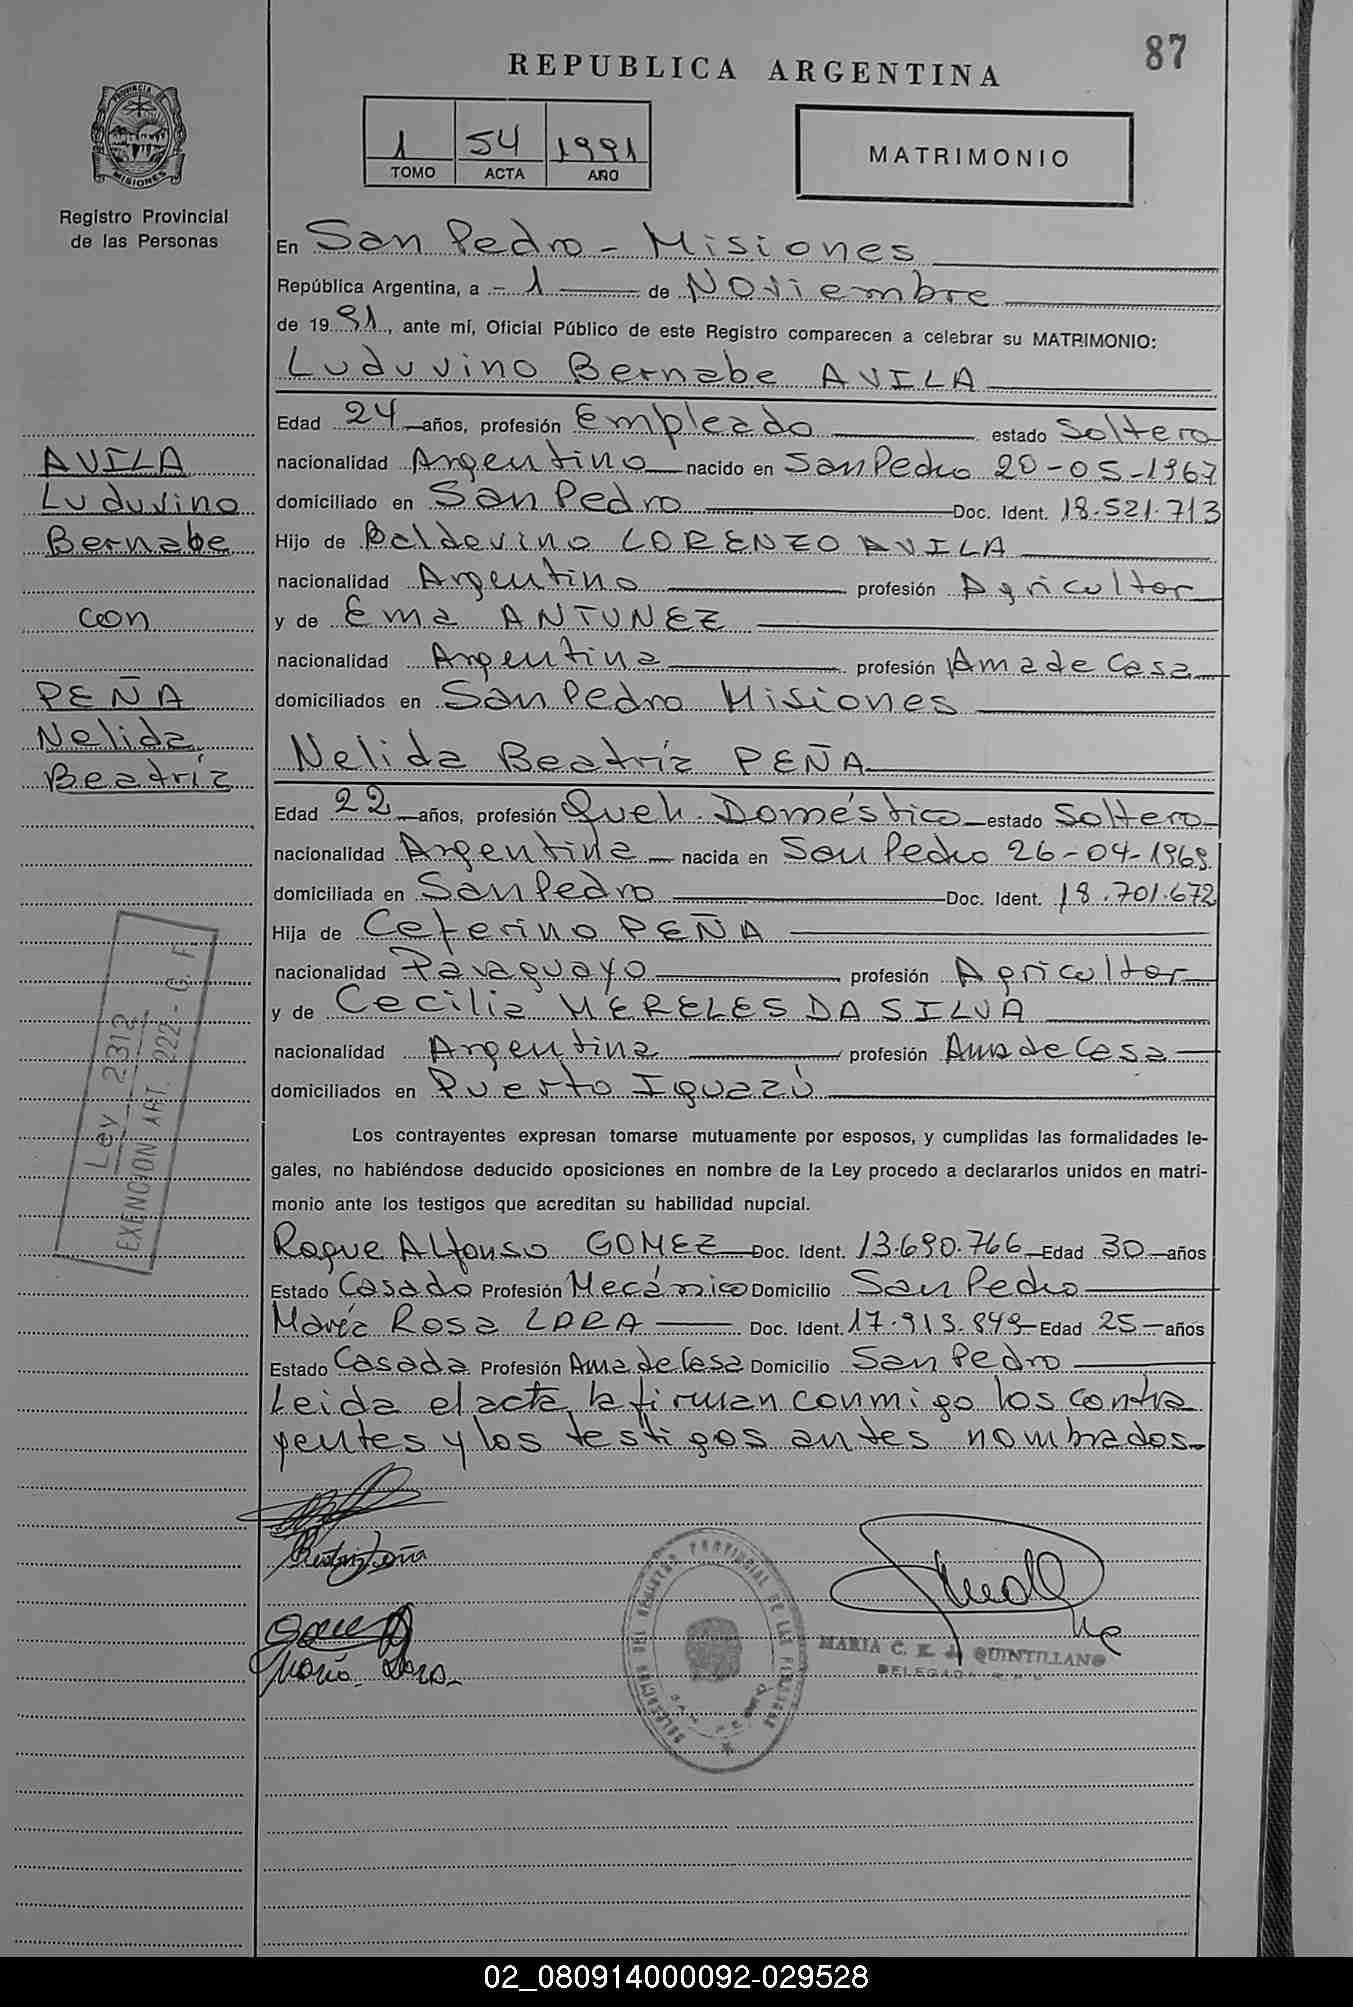 87
REPUBLICA ARGENTINA
PROVINCIA DE
MISIONES
Registro Provincial
de las Personas
1 54 1991
TOMO ACTA AÑO
MATRIMONIO
En San Pedro - Misiones
República Argentina, a - 1 de Noviembre
de 1991, ante mí, Oficial Público de este Registro comparecen a celebrar su MATRIMONIO:
Luduvino Bernabe AVILA
Edad 24 años, profesión Empleado estado Soltero
nacionalidad Argentino nacido en San Pedro 20-05-1967
domiciliado en San Pedro Doc. Ident. 18.521.713
Hijo de Baldevino LORENZO AVILA
nacionalidad Argentino profesión Agricultor
y de Ema ANTUNEZ
nacionalidad Argentina profesión Ama de Casa
domiciliados en San Pedro Misiones
Nelida Beatríz PEÑA
Edad 22 años, profesión Queh. Doméstico estado Soltero
nacionalidad Argentina nacida en San Pedro 26-04-1969
domiciliada en San Pedro Doc. Ident. 18.701.672
Hija de Ceferino PEÑA
nacionalidad Paraguayo profesión Agricultor
y de Cecilia MERELES DA SILVA
nacionalidad Argentina profesión Ama de Casa
domiciliados en Puerto Iguazú
Los contrayentes expresan tomarse mutuamente por esposos, y cumplidas las formalidades le-
gales, no habiéndose deducido oposiciones en nombre de la Ley procedo a declararlos unidos en matri-
monio ante los testigos que acreditan su habilidad nupcial.
Roque Alfonso GOMEZ Doc. Ident. 13.690.766 Edad 30 años
Estado Casado Profesión Mecánico Domicilio San Pedro
María Rosa LARA Doc. Ident. 17.913.849 Edad 25 años
Estado Casada Profesión Ama de Casa Domicilio San Pedro
Leida el acta, la firman conmigo los contra
yentes y los testigos antes nombrados.
AVILA
Luduvino
Bernabe
con
PEÑA
Nelida
Beatríz
Ley 2312
EXENCION ART. 222 - C. F.
Beatriz Peña
María Lara
DELEGACION DEL REGISTRO PROVINCIAL DE LAS PERSONAS
SAN PEDRO
MARIA C. K. d. QUINTILLANO
DELEGADA
02_080914000092-029528